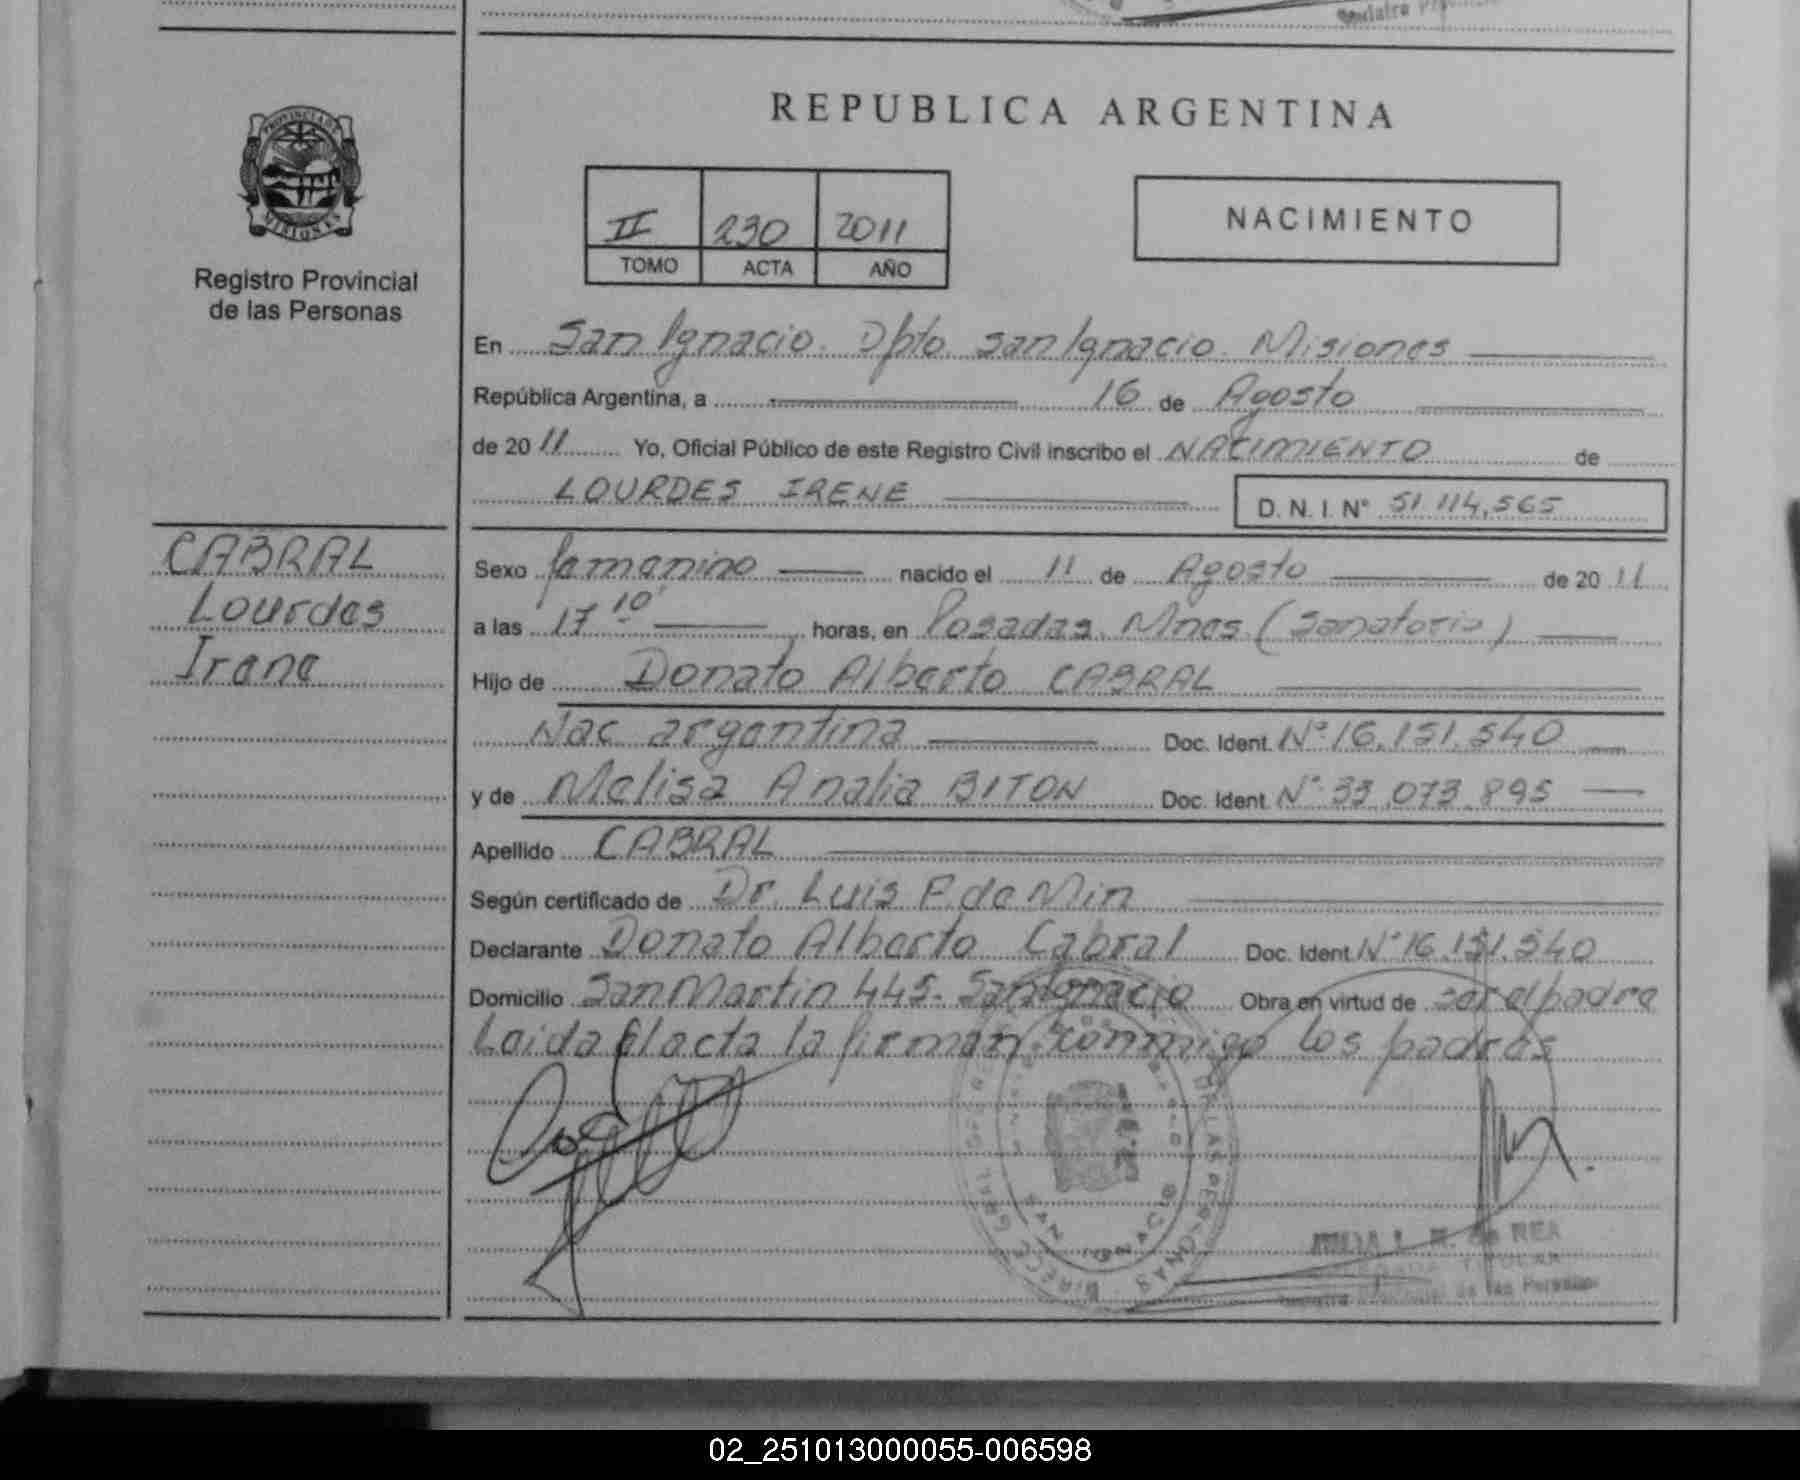 REPUBLICA ARGENTINA
PROVINCIA DE
MISIONES
Registro Provincial
de las Personas
II 230 2011
TOMO ACTA AÑO
NACIMIENTO
En San Ignacio. Dpto. San Ignacio. Misiones
República Argentina, a 16 de Agosto
de 20 11 Yo, Oficial Público de este Registro Civil inscribo el NACIMIENTO de
LOURDES IRENE D. N. I. N° 51.114.565
CABRAL
Lourdes
Irene
Sexo femenino nacido el 11 de Agosto de 20 11
a las 17 10' horas, en Posadas. Mnes (Sanatorio)
Hijo de Donato Alberto CABRAL
Nac argentina Doc. Ident. N° 16.151.540
y de Melisa Analia BITON Doc. Ident. N° 33.073.895
Apellido CABRAL
Según certificado de Dr. Luis P. de Min
Declarante Donato Alberto Cabral Doc. Ident. N° 16.151.540
Domicilio San Martin 445. San Ignacio Obra en virtud de ser el padre
Leida el acta la firman conmigo los padres
SAN IGNACIO
DE LAS PERSONAS
L. R. de REA
TITULAR
de las Personas
02_251013000055-006598